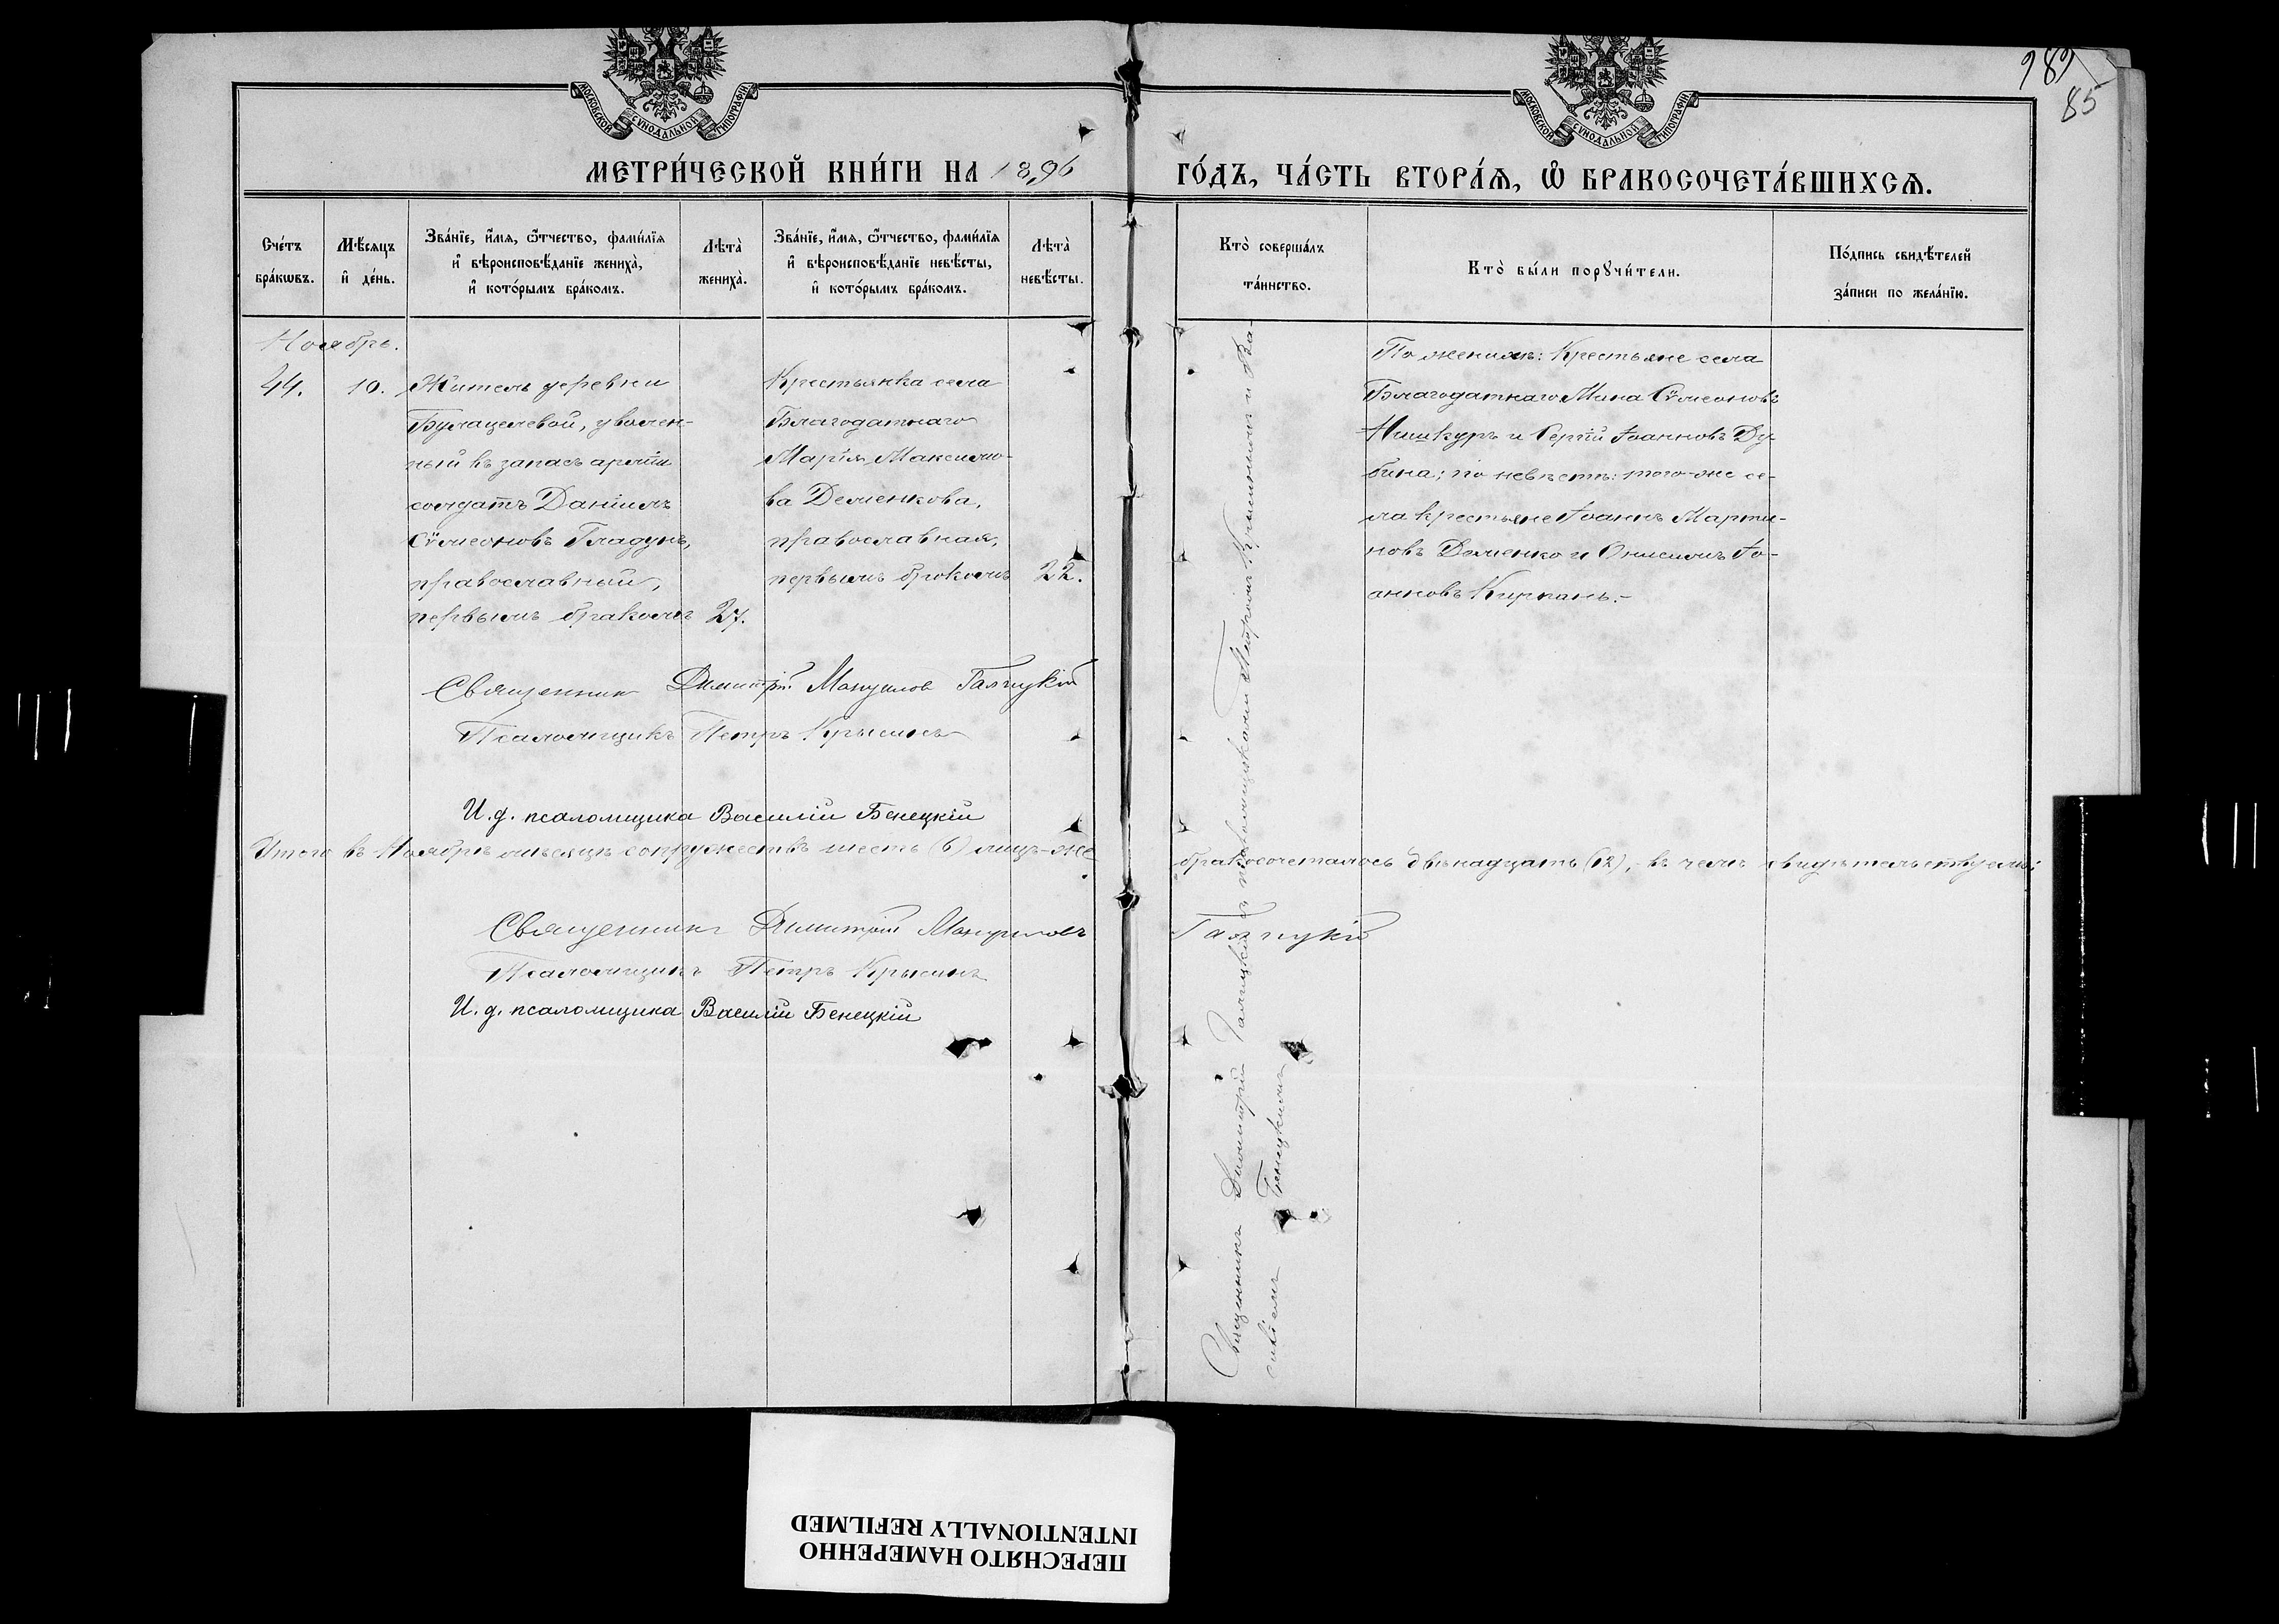 989
85
МОСКОВСКОЙ СУНОДАЛЬНОЙ ТИПОГРАФІИ
МОСКОВСКОЙ СУНОДАЛЬНОЙ ТИПОГРАФІИ
МЕТРИ́ЧЕСКОЙ КНИ́ГИ НА 1896 ГО́ДЪ, ЧА́СТЬ ВТОРА́Ѧ, Ѽ БРАКОСОЧЕТА́ВШИХСѦ.
Сче́тъ
бра́кѡвъ.
Мѣ́сяцъ
и҆ де́нь.
Зва́нїе, и҆́мя, ѻ҆́тчество, фами́лїя
и҆ вѣроисповѣ́данїе жениха̀,
и҆ кото́рымъ бра́комъ.
Лѣта̀
жениха̀.
Зва́нїе, и҆́мя, ѻ҆́тчество, фами́лїя
и҆ вѣроисповѣ́данїе невѣ́сты,
и҆ кото́рымъ бра́комъ.
Лѣта̀
невѣ́сты.
Кто̀ соверша́лъ
та́инство.
Кто̀ бы́ли порꙋчи́тели.
По́дпись свидѣ́телей
за́писи по жела́нїю.
Ноябрь.
44.
10.
Житель деревни
Булацелевой, уволен-
ный въ запасъ арміи
солдатъ Даніилъ
Сѵмеоновъ Гладунъ,
православный,
первымъ бракомъ
27.
Крестьянка села
Благодатнаго
Марія Максимо-
ва Деменкова,
православная,
первымъ бракомъ
22.
Священникъ Димитрій Галицкій съ псаломщиками Петромъ Крысинымъ и Ва-
силіемъ Бенецкимъ
По женихѣ: Крестьяне села
Благодатнаго Мина Сѵмеоновъ
Нишкуръ и Сергій Іоанновъ Ду-
бина; по невѣстѣ: того-же се-
ла крестьяне Іоаннъ Марти-
новъ Деменко и Онисимъ Іо-
анновъ Кирпань.-
Священник Димитрій Мануилов Галицкій
Псаломщикъ Петръ Крысинъ
И. д. псаломщика Василій Бенецкій
Итого въ Ноябрѣ мѣсяцѣ супружествъ шесть (6) лицъ-же бракосочеталось двѣнадцать (12), въ чемъ свидѣтельствуемъ:
Священникъ Димитрій Мануиловъ Галицкій
Псаломщикъ Петръ Крысинъ
И. д. псаломщика Василій Бенецкій
ПЕРЕСНЯТО НАМЕРЕННО
INTENTIONALLY REFILMED